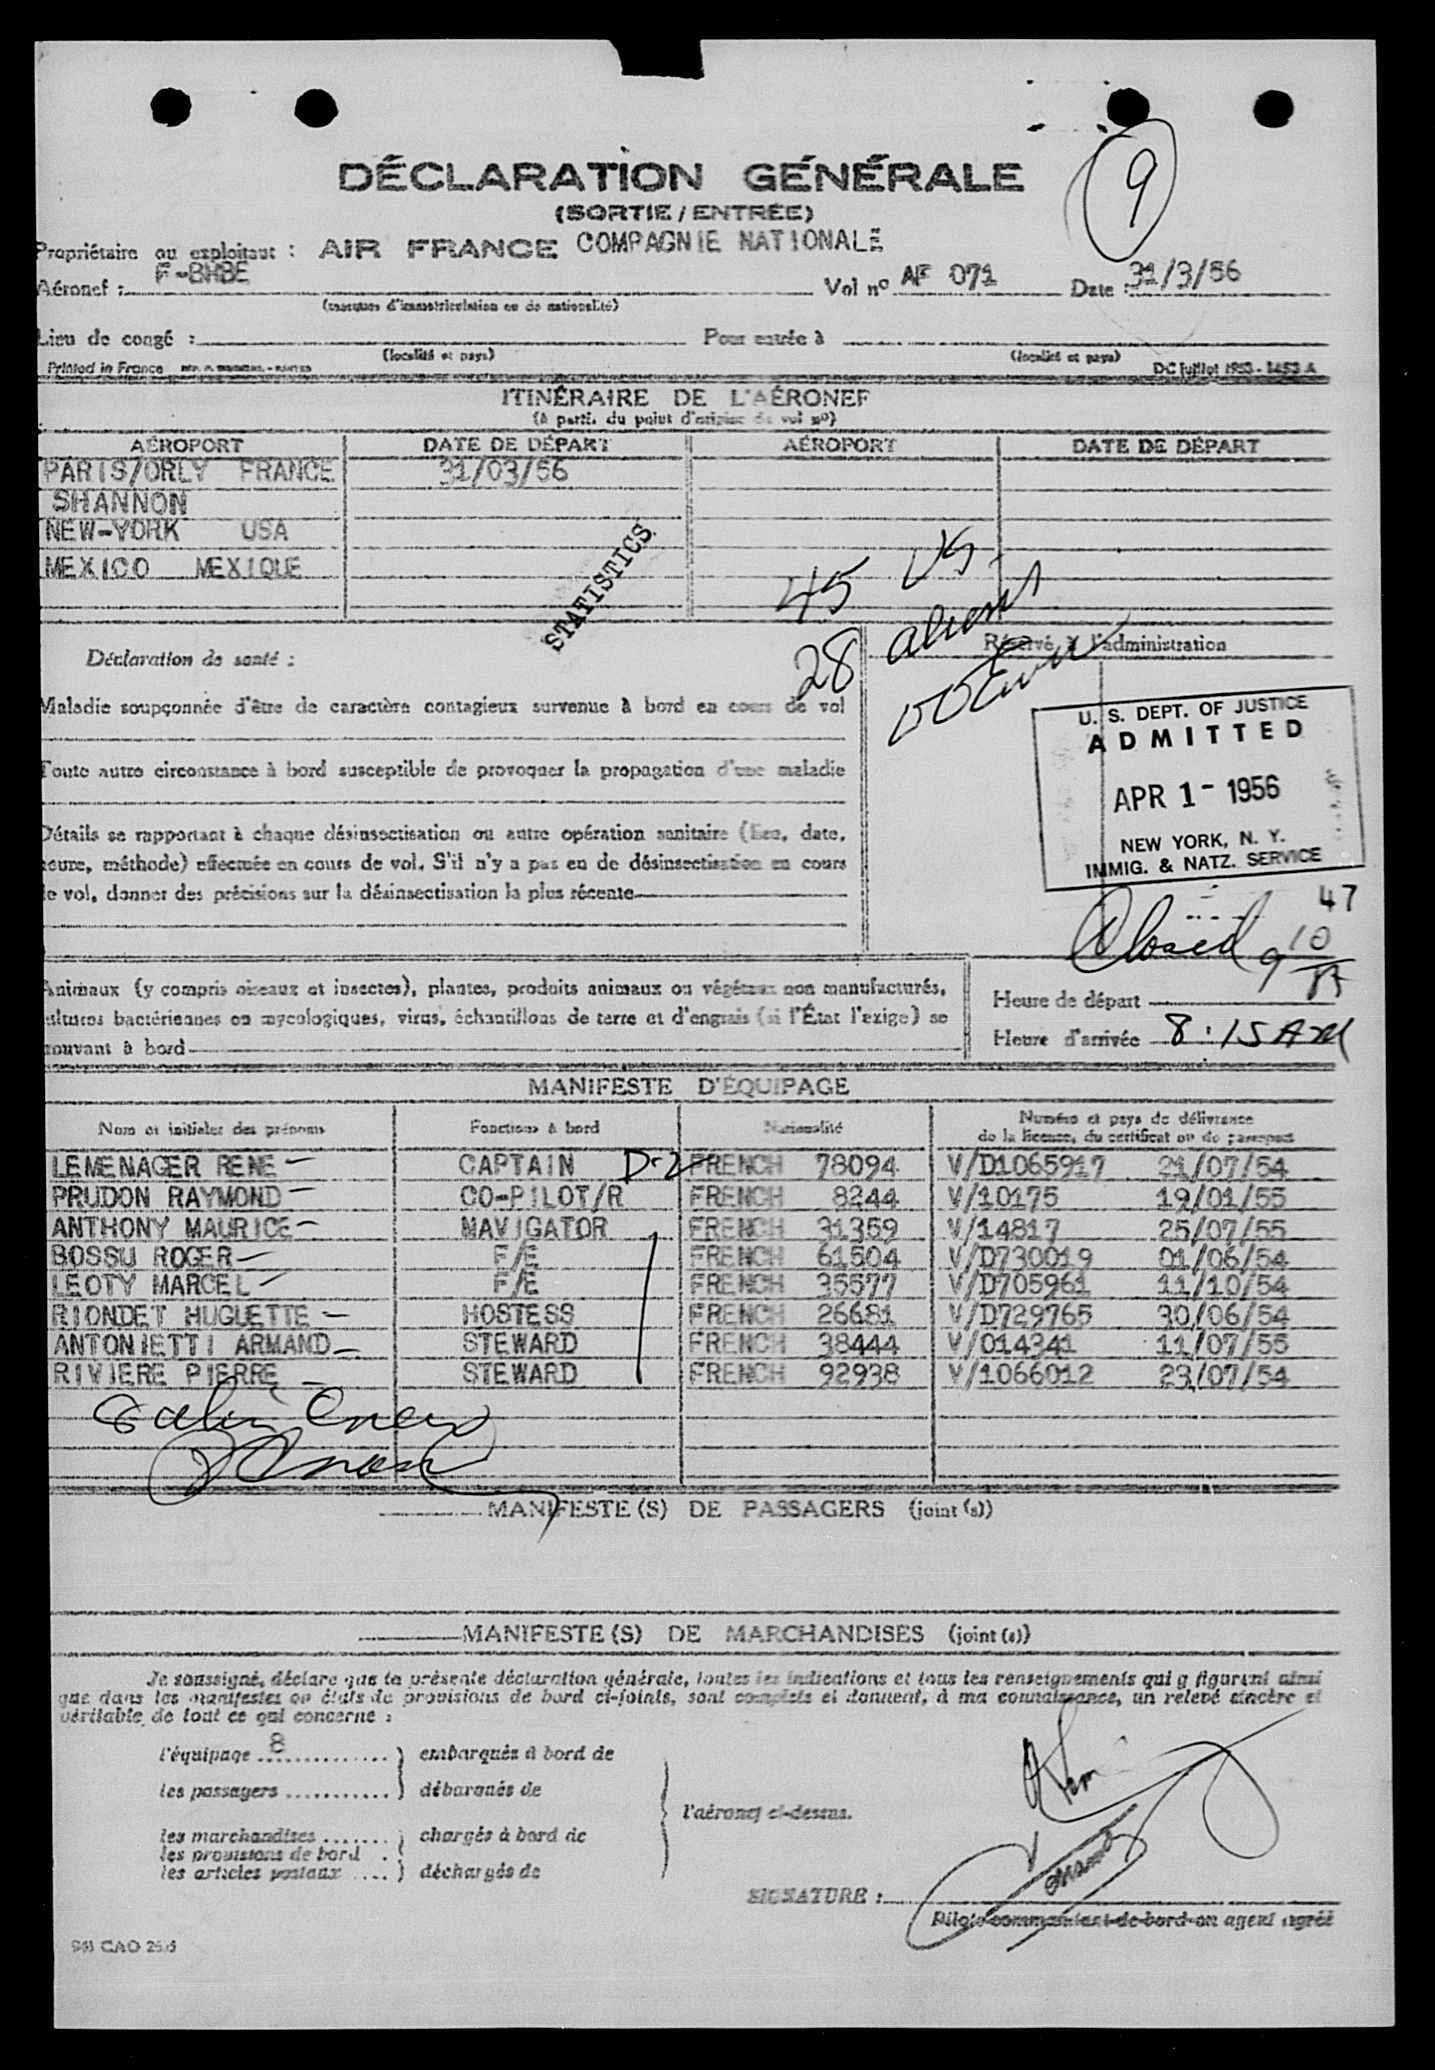 9
DÉCLARATION GÉNÉRALE
(SORTIE / ENTRÉE)
Propriétaire ou exploitant : AIR FRANCE COMPAGNIE NATIONALE
Aéronef : F-BHBE Vol nº AF 071 Date : 31/3/56
(marques d'immatriculation ou de nationalité)
Lieu de congé : Pour entrée à
(localité et pays) (localité et pays)
Printed in France DC Juillet 1953 - 1453 A
ITINÉRAIRE DE L'AÉRONEF
(à parti. du point d'origine du vol nº)
AÉROPORT DATE DE DÉPART AÉROPORT DATE DE DÉPART
PARIS/ORLY FRANCE 31/03/56
SHANNON
NEW-YORK USA
MEXICO MEXIQUE
STATISTICS
45 US
28 aliens
Réservé à l'administration
Déclaration de santé :
Maladie soupçonnée d'être de caractère contagieux survenue à bord en cours de vol
Toute autre circonstance à bord susceptible de provoquer la propagation d'une maladie
Détails se rapportant à chaque désinsectisation ou autre opération sanitaire (lieu, date,
heure, méthode) effectuée en cours de vol. S'il n'y a pas eu de désinsectisation en cours
de vol, donner des précisions sur la désinsectisation la plus récente
U. S. DEPT. OF JUSTICE
ADMITTED
APR 1 - 1956
NEW YORK, N. Y.
IMMIG. & NATZ. SERVICE
47
Closed 9 10
Animaux (y compris oiseaux et insectes), plantes, produits animaux ou végétaux non manufacturés,
cultures bactériennes ou mycologiques, virus, échantillons de terre et d'engrais (si l'État l'exige) se
trouvant à bord
Heure de départ
Heure d'arrivée 8:15 AM
MANIFESTE D'ÉQUIPAGE
Nom et initiales des prénoms Fonctions à bord Nationalité Numéro et pays de délivrance
de la licence, du certificat ou du passeport
LEMENAGER RENE CAPTAIN D-2 FRENCH 78094 V/D1065917 21/07/54
PRUDON RAYMOND CO-PILOT/R FRENCH 8244 V/10175 19/01/55
ANTHONY MAURICE NAVIGATOR FRENCH 31359 V/14817 25/07/55
BOSSU ROGER F/E FRENCH 61504 V/D730019 01/06/54
LEOTY MARCEL F/E FRENCH 35577 V/D705961 11/10/54
RIONDET HUGUETTE HOSTESS FRENCH 26681 V/D729765 30/06/54
ANTONIETTI ARMAND STEWARD FRENCH 38444 V/014341 11/07/55
RIVIERE PIERRE STEWARD FRENCH 92938 V/1066012 23/07/54
MANIFESTE (S) DE PASSAGERS (joint (s))
MANIFESTE (S) DE MARCHANDISES (joint (s))
Je soussigné, déclare que la présente déclaration générale, toutes les indications et tous les renseignements qui y figurent ainsi
que dans les manifestes ou états de provisions de bord ci-joints, sont complets et donnent, à ma connaissance, un relevé sincère et
véritable de tout ce qui concerne :
l'équipage 8 embarqués à bord de
les passagers débarqués de
l'aéronef ci-dessus.
les marchandises chargés à bord de
les provisions de bord
les articles postaux déchargés de
SIGNATURE :
Pilote commandant de bord ou agent agréé